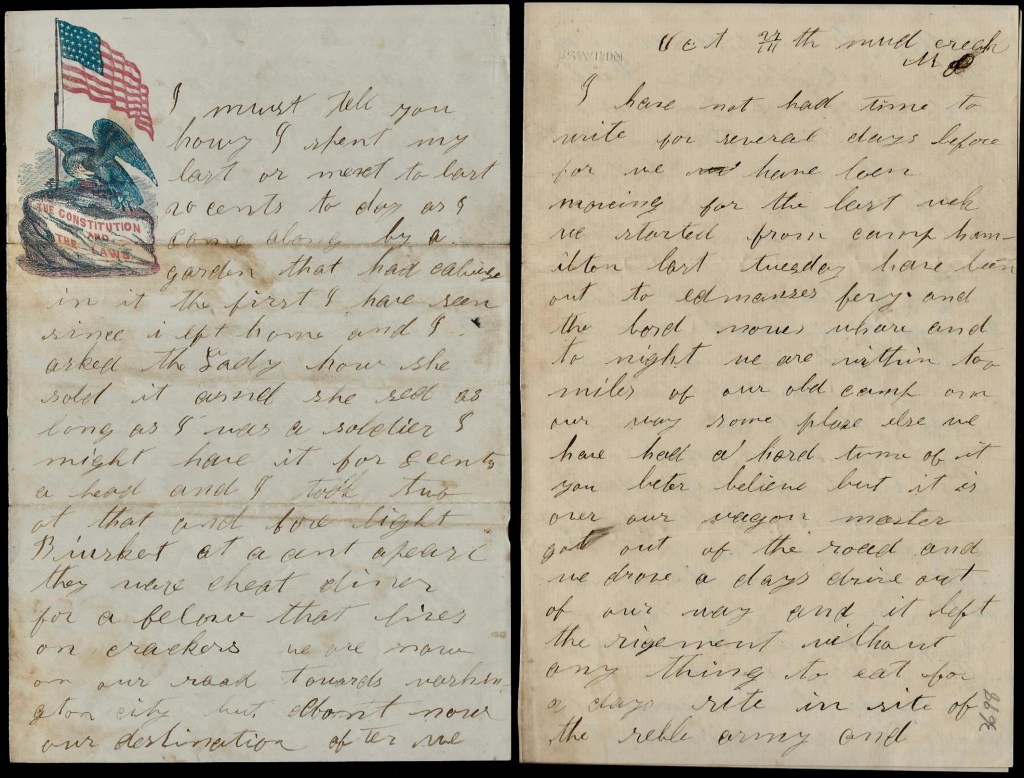 THE CONSTITUTION
AND
THE LAWS
I must tell you
how I spent my
last or next to last
20 cents to day as I
come along by a
garden that had cabinge
in it the first I have seen
since i left home and I
asked the Lady how she
sold it and she sed as
long as I was a soldier I
might have it for 5 cents
a head and I took two
at that and fore light
Biusket at a cent apeare
they ware cheat diner
for a felow that lives
on crackers we are now
on our road towards washin
gton city but dont now
our destination after we
Oct th mud creek
I have not had time to
write for several days before
for we have ben
moveing for the last wek
we started from camp ham
ilton last tuesday have been
out to edmanses fery and
the lord nows whare and
to night we are within too
miles of our old camp on
our way some plase else we
have had a hard time of it
you beter believe but it is
over our wagon master
got out of the road and
we drove a days drive out
of our way and it left
the rigement without
any thing to eat for
a days rite in site of
the reble army and
8698